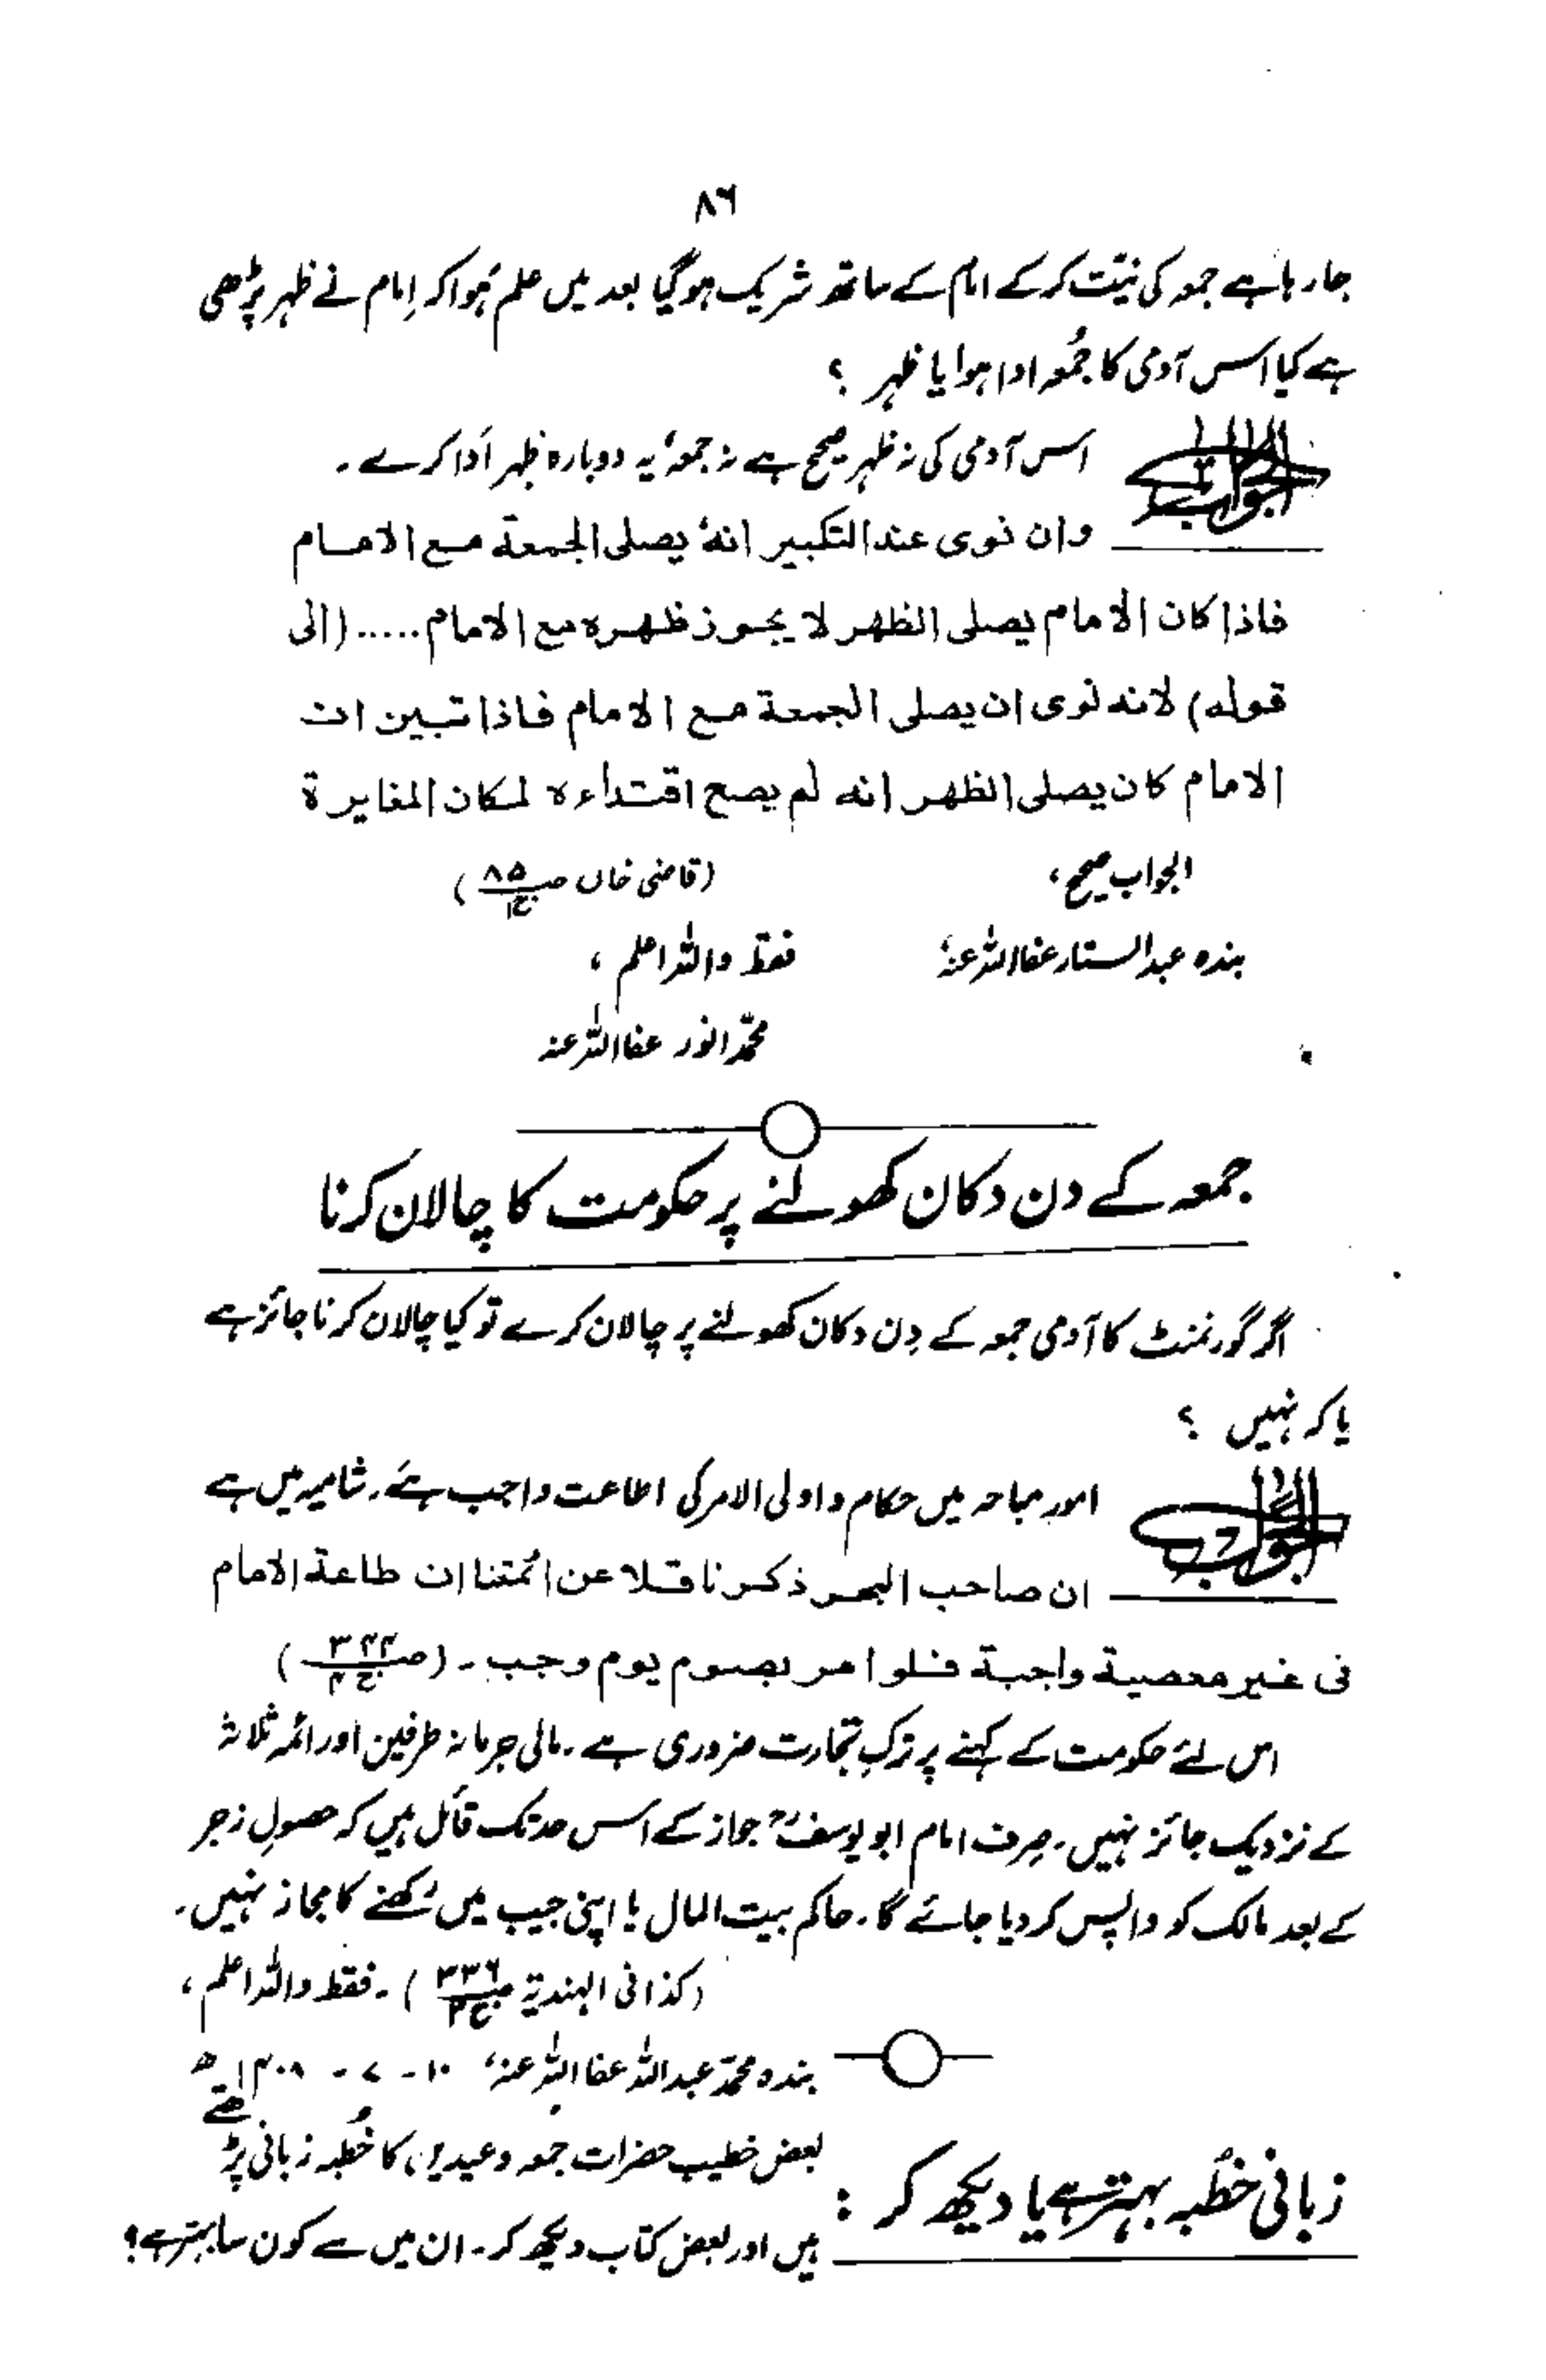 ٨٦
جا رہا ہے جمعہ کی نیّت کر کے امام کے ساتھ شریک ہو گیا بعد میں علم ہُوا کہ اِمام نے ظہر پڑھی
ہے کیا اس آدمی کا جُمُعہ ادا ہوا یا ظہر ؟
الجواب اس آدمی کی نہ ظہر صحیح ہے نہ جمعہ یہ دوبارہ ظہر اَدا کرے ۔
وان نوى عند التكبير انهٗ يصلى الجمعة مع الامام
فاذا كان الامام يصلى الظهر لا يجوز ظهره مع الامام ..... (الى
قوله) لانه نوى ان يصلى الجمعة مع الامام فاذا تبين ان
الامام كان يصلى الظهر انه لم يصح اقتداءه لمكان المغايرة
الجواب صحیح، (قاضی خاں ص ٨٥ ج ١)
بندہ عبدالستار عفا اللہ عنہٗ فقط واللہ اعلم ،
محمّد انور عفا اللہ عنہ
جمعہ کے دن دکان کھولنے پر حکومت کا چالان کرنا
اگر گورنمنٹ کا آدمی جمعہ کے دِن دکان کھولنے پر چالان کرے تو کیا چالان کرنا جائز ہے
یا کہ نہیں ؟
الجواب امور مباحہ میں حکام و اولی الامر کی اطاعت واجب ہے۔ شامیہ میں ہے
ان صاحب البحر ذكر ناقلا عن ائمتنا ان طاعة الامام
فى غير معصية واجبة فلو امر بصوم يوم وجب ۔ (ص ج)
اس لئے حکومت کے کہنے پر ترکِ تجارت ضروری ہے ۔ مالی جرمانہ طرفین اور ائمہ ثلاثہ
کے نزدیک جائز نہیں۔ صِرف امام ابو یوسفؒ جواز کے اس حد تک قائل ہیں کہ حصولِ زجر
کے بعد مالک کو واپس کر دیا جائے گا۔ حاکم بیت المال یا اپنی جیب میں رکھنے کا مجاز نہیں۔
(کذا فی الہندیۃ ص ج) ۔ فقط واللہ اعلم ،
بندہ محمّد عبداللہ عفا اللہ عنہٗ ١٠ - ٧ - ١٤٠٨ھ
زبانی خطبہ بہتر ہے یا دیکھ کر : بعض خطیب حضرات جمعہ و عیدین کا خُطبہ زبانی پڑھتے
ہیں اور بعض کتاب دیکھ کر۔ ان میں سے کون سا بہتر ہے؟